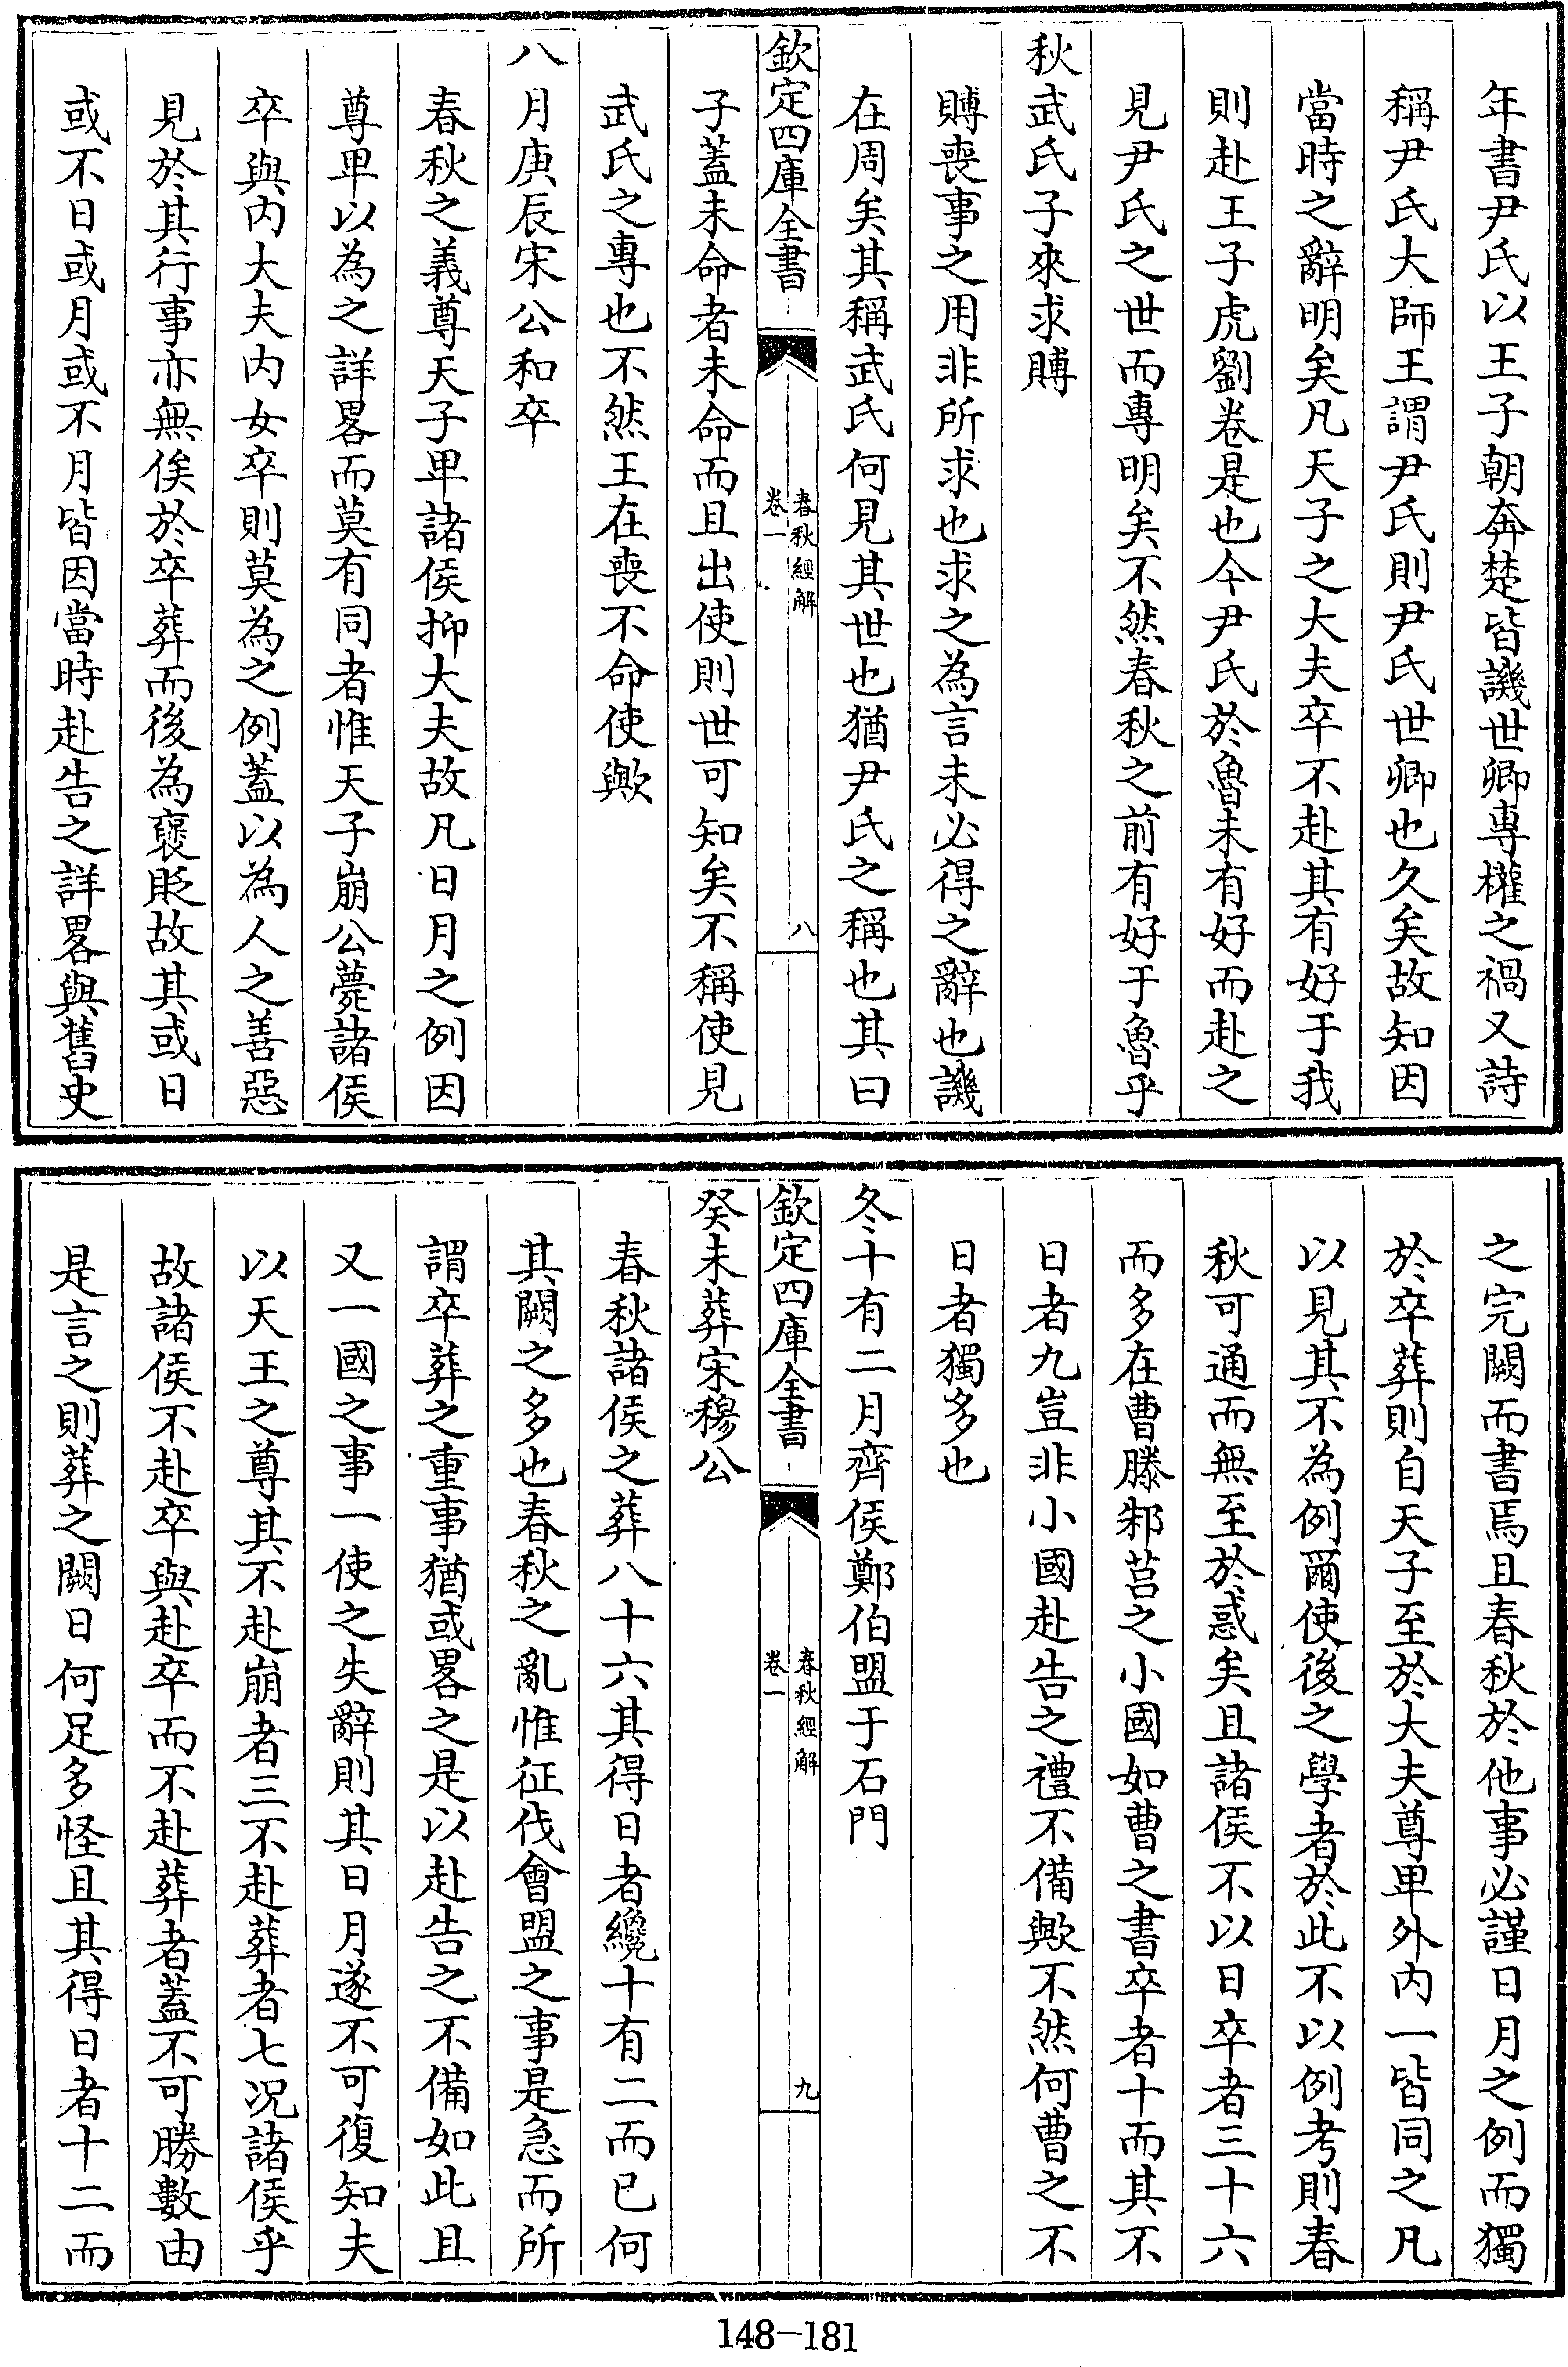 年書尹氏以王子朝奔楚皆譏世卿專權之禍又詩
稱尹氏大師王謂尹氏則尹氏世卿也久矣故知因
當時之辭明矣凡天子之大夫卒不赴其有好于我
則赴王子虎劉卷是也今尹氏於魯未有好而赴之
見尹氏之世而專明矣不然春秋之前有好于魯乎
秋武氏子來求賻
賻喪事之用非所求也求之為言未必得之辭也譏
在周矣其稱武氏何見其世也猶尹氏之稱也其曰
欽定四庫全書
春秋經解
卷一
八
子蓋未命者未命而且出使則世可知矣不稱使見
武氏之專也不然王在喪不命使歟
八月庚辰宋公和卒
春秋之義尊天子卑諸侯抑大夫故凡日月之例因
尊卑以為之詳畧而莫有同者惟天子崩公薨諸侯
卒與内大夫内女卒則莫為之例蓋以為人之善惡
見於其行事亦無俟於卒葬而後為褒貶故其或日
或不日或月或不月皆因當時赴告之詳畧與舊史
之完闕而書焉且春秋於他事必謹日月之例而獨
於卒葬則自天子至於大夫尊卑外内一皆同之凡
以見其不為例爾使後之學者於此不以例考則春
秋可通而無至於惑矣且諸侯不以日卒者三十六
而多在曹滕邾莒之小國如曹之書卒者十而其不
日者九豈非小國赴告之禮不備歟不然何曹之不
日者獨多也
冬十有二月齊侯鄭伯盟于石門
欽定四庫全書
春秋經解
卷一
九
癸未葬宋穆公
春秋諸侯之葬八十六其得日者纔十有二而已何
其闕之多也春秋之亂惟征伐會盟之事是急而所
謂卒葬之重事猶或畧之是以赴告之不備如此且
又一國之事一使之失辭則其日月遂不可復知夫
以天王之尊其不赴崩者三不赴葬者七况諸侯乎
故諸侯不赴卒與赴卒而不赴葬者蓋不可勝數由
是言之則葬之闕日何足多怪且其得日者十二而
148-181